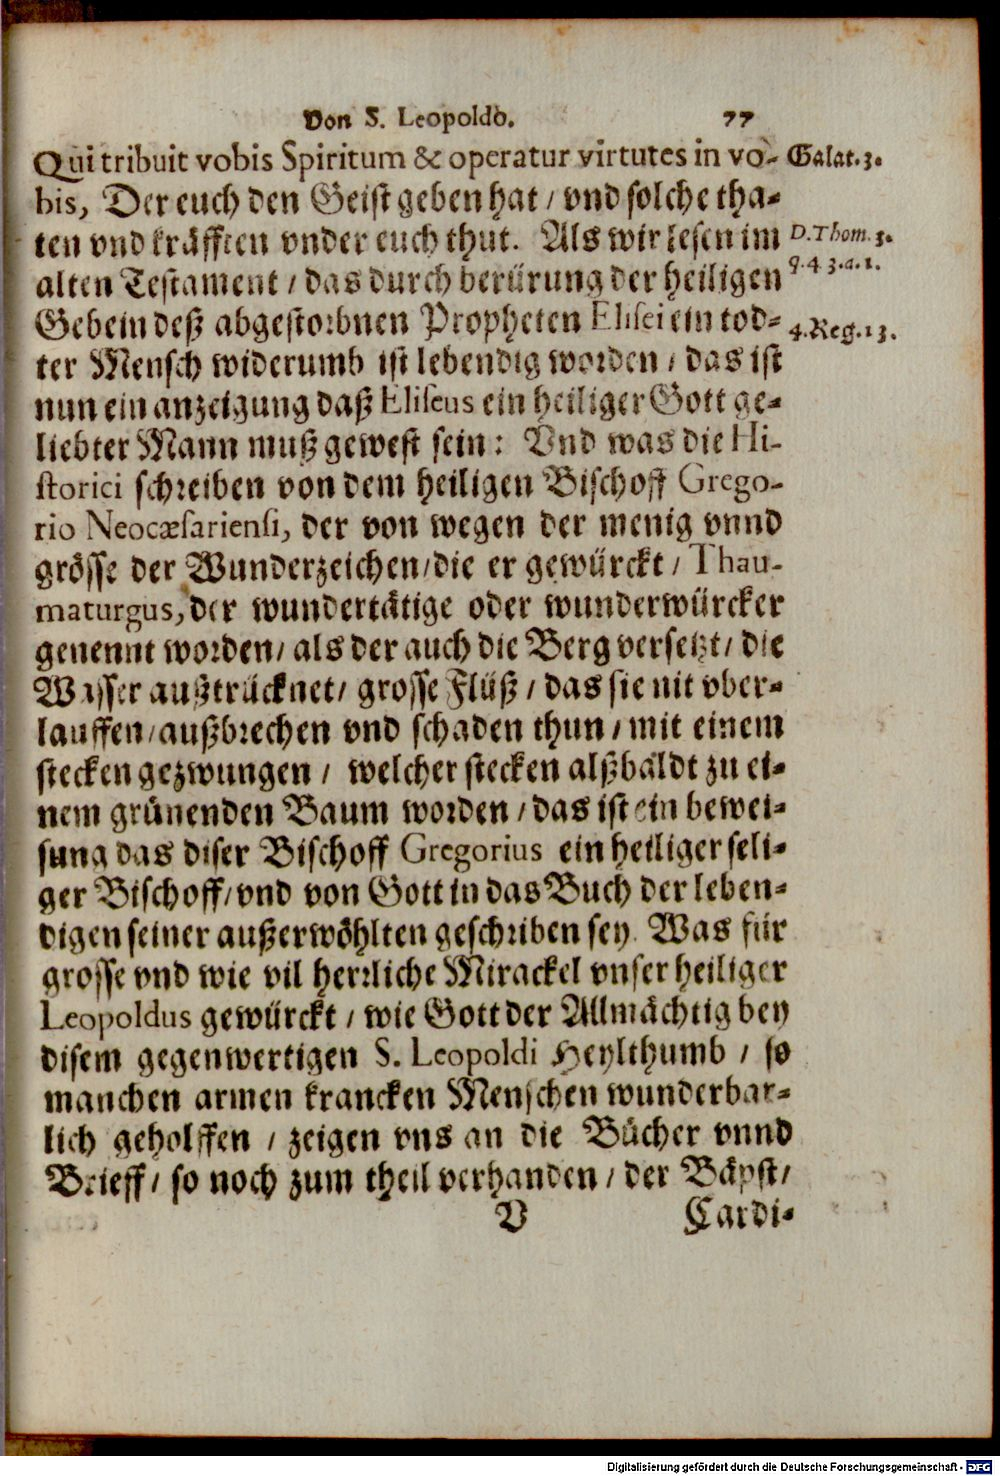 Von S. Leopoldo. 77
Qui tribuit vobis Spiritum & operatur virtutes in vo- Galat. 3.
bis, Der euch den Geist geben hat / vnd solche tha-
ten vnd kräfften vnder euch thut. Als wir lesen im D. Thom. 3.
q. 43. a. 1.
alten Testament / das durch berürung der heiligen
Gebein deß abgestorbnen Propheten Elisei ein tod- 4. Reg. 13.
ter Mensch widerumb ist lebendig worden / das ist
nun ein anzeigung daß Eliseus ein heiliger Gott ge-
liebter Mann muß gewest sein: Vnd was die Hi-
storici schreiben von dem heiligen Bischoff Grego-
rio Neocæsariensi, der von wegen der menig vnnd
grösse der Wunderzeichen / die er gewürckt / Thau-
maturgus, der wundertätige oder wunderwürcker
genennt worden / als der auch die Berg versetzt / die
Wasser außtrücknet / grosse Flüß / das sie nit vber-
lauffen / außbrechen vnd schaden thun / mit einem
stecken gezwungen / welcher stecken alßbaldt zu ei-
nem grünenden Baum worden / das ist ein bewei-
sung das diser Bischoff Gregorius ein heiliger seli-
ger Bischoff / vnd von Gott in das Buch der leben-
digen seiner außerwöhlten geschriben sey. Was für
grosse vnd wie vil herrliche Mirackel vnser heiliger
Leopoldus gewürckt / wie Gott der Allmächtig bey
disem gegenwertigen S. Leopoldi Heylthumb / so
manchen armen krancken Menschen wunderbar-
lich geholffen / zeigen vns an die Bücher vnnd
Brieff / so noch zum theil verhanden / der Bäpst /
V Cardi-
Digitalisierung gefördert durch die Deutsche Forschungsgemeinschaft - DFG